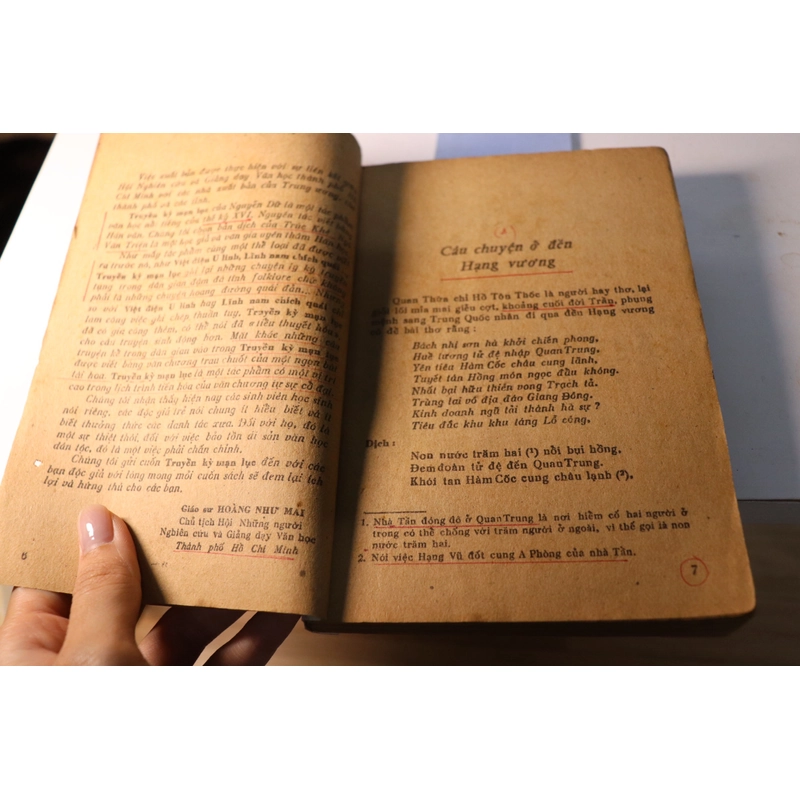 Việc xuất bản được thực hiện với sự liên kết giữa
Hội Nghiên cứu và Giảng dạy Văn học thành phố Hồ
Chí Minh với các nhà xuất bản của Trung ương,
thành phố và các tỉnh.
Truyền kỳ mạn lục của Nguyễn Dữ là một tác phẩm
văn học nổi tiếng của thế kỷ XVI. Nguyên tác viết bằng
Hán văn. Chúng tôi chọn bản dịch của Trúc Khê
Văn Triển là một học giả và văn gia uyên thâm Hán
Như mấy tác phẩm cùng một thể loại đã được
ra trước nó, như Việt điện U linh, Lĩnh nam chích quái
Truyền kỳ mạn lục ghi lại những chuyện ly kỳ
trong dân gian đậm đà tính folklore chứ không
phải là những chuyện hoang đường quái đản... Nhưng
so với Việt điện U linh hay Lĩnh nam chích quái chỉ
làm công việc ghi chép thuần tuý, Truyền kỳ mạn lục
đã có gia công thêm, có thể nói đã «tiểu thuyết hóa»
cho câu truyện sinh động hơn. Mặt khác những câu
truyện kể trong dân gian vào trong Truyền kỳ mạn lục
được viết bằng văn chương trau chuốt của một ngọn bút
tài hoa. Truyền kỳ mạn lục là một tác phẩm có một vị trí
cao trong lịch trình tiến hóa của văn chương tự sự cổ đại.
Chúng tôi nhận thấy hiện nay các sinh viên học sinh
nói riêng, các độc giả trẻ nói chung ít hiểu biết và ít
biết thưởng thức các danh tác xưa. Đối với họ, đó là
một sự thiệt thòi, đối với việc bảo tồn di sản văn học
dân tộc, đó là một việc phải chấn chỉnh.
Chúng tôi gửi cuốn Truyền kỳ mạn lục đến với các
bạn độc giả với lòng mong mỗi cuốn sách sẽ đem lại ích
lợi và hứng thú cho các bạn.
Giáo sư HOÀNG NHƯ MAI
Chủ tịch Hội Những người
Nghiên cứu và Giảng dạy Văn học
Thành phố Hồ Chí Minh
Câu chuyện ở đền
Hạng vương
Quan Thừa chỉ Hồ Tôn Thốc là người hay thơ, lại
giỏi lối mỉa mai giễu cợt, khoảng cuối đời Trần, phụng
mệnh sang Trung Quốc nhân đi qua đền Hạng vương
có đề bài thơ rằng :
Bách nhị sơn hà khởi chiến phong,
Huề tương tử đệ nhập Quan Trung.
Yên tiêu Hàm Cốc châu cung lãnh,
Tuyết tán Hồng môn ngọc đẩu không.
Nhất bại hữu thiên vong Trạch tả.
Trùng lai vô địa đáo Giang Đông.
Kinh doanh ngũ tải thành hà sự ?
Tiêu đắc khu khu táng Lỗ công.
Dịch :
Non nước trăm hai (¹) nổi bụi hồng,
Đem đoàn tử đệ đến Quan Trung.
Khói tan Hàm Cốc cung châu lạnh (²),
1. Nhà Tần đóng đô ở Quan Trung là nơi hiểm cố hai người ở
trong có thể chống với trăm người ở ngoài, vì thế gọi là non
nước trăm hai.
2. Nói việc Hạng Vũ đốt cung A Phòng của nhà Tần.
7